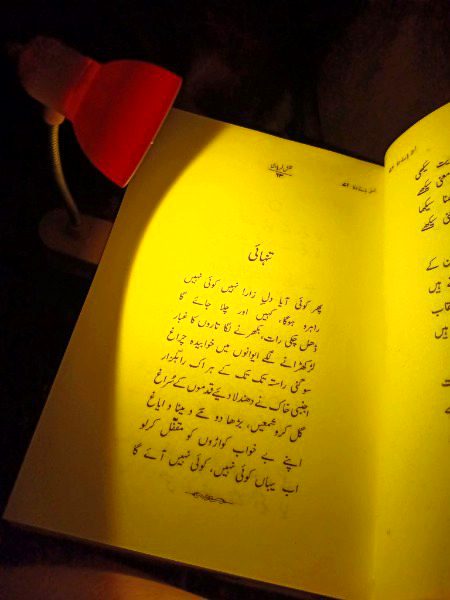 تنہائی
پھر کوئی آیا دلِ زار! نہیں کوئی نہیں
راہرو ہوگا، کہیں اور چلا جائے گا
ڈھل چکی رات، بکھرنے لگا تاروں کا غبار
لڑکھڑانے لگے ایوانوں میں خوابیدہ چراغ
سوگئی راستہ تک تک کے ہر اک راہگذار
اجنبی خاک نے دھندلا دیئے قدموں کے سُراغ
گل کرو شمعیں، بڑھا دو مے و مینا و ایاغ
اپنے بے خواب کواڑوں کو مقفّل کرلو
اب یہاں کوئی نہیں، کوئی نہیں آئے گا
سیکھی
معنی سیکھے
سیکھا
سیکھے